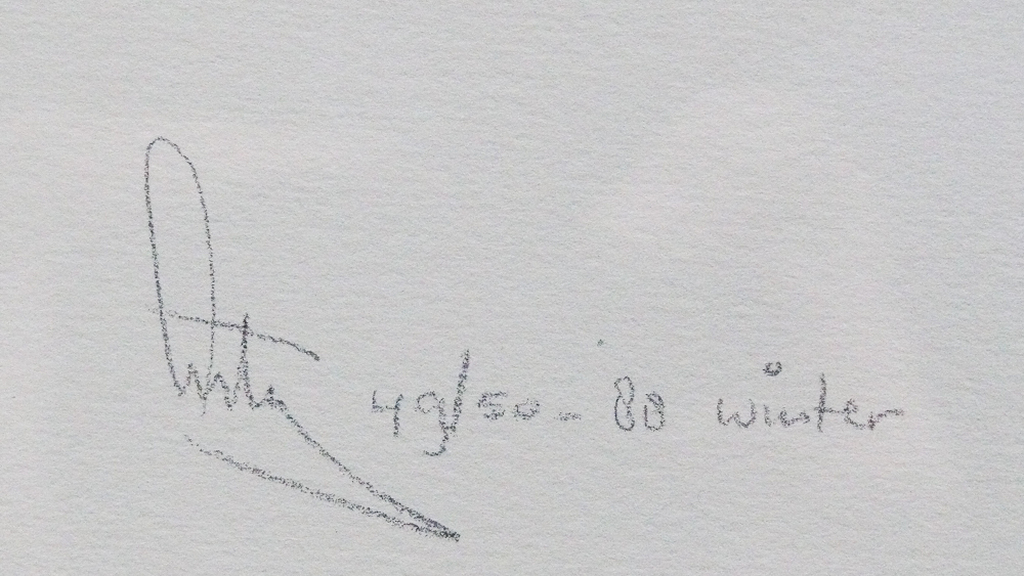 49/50 - 80 winter